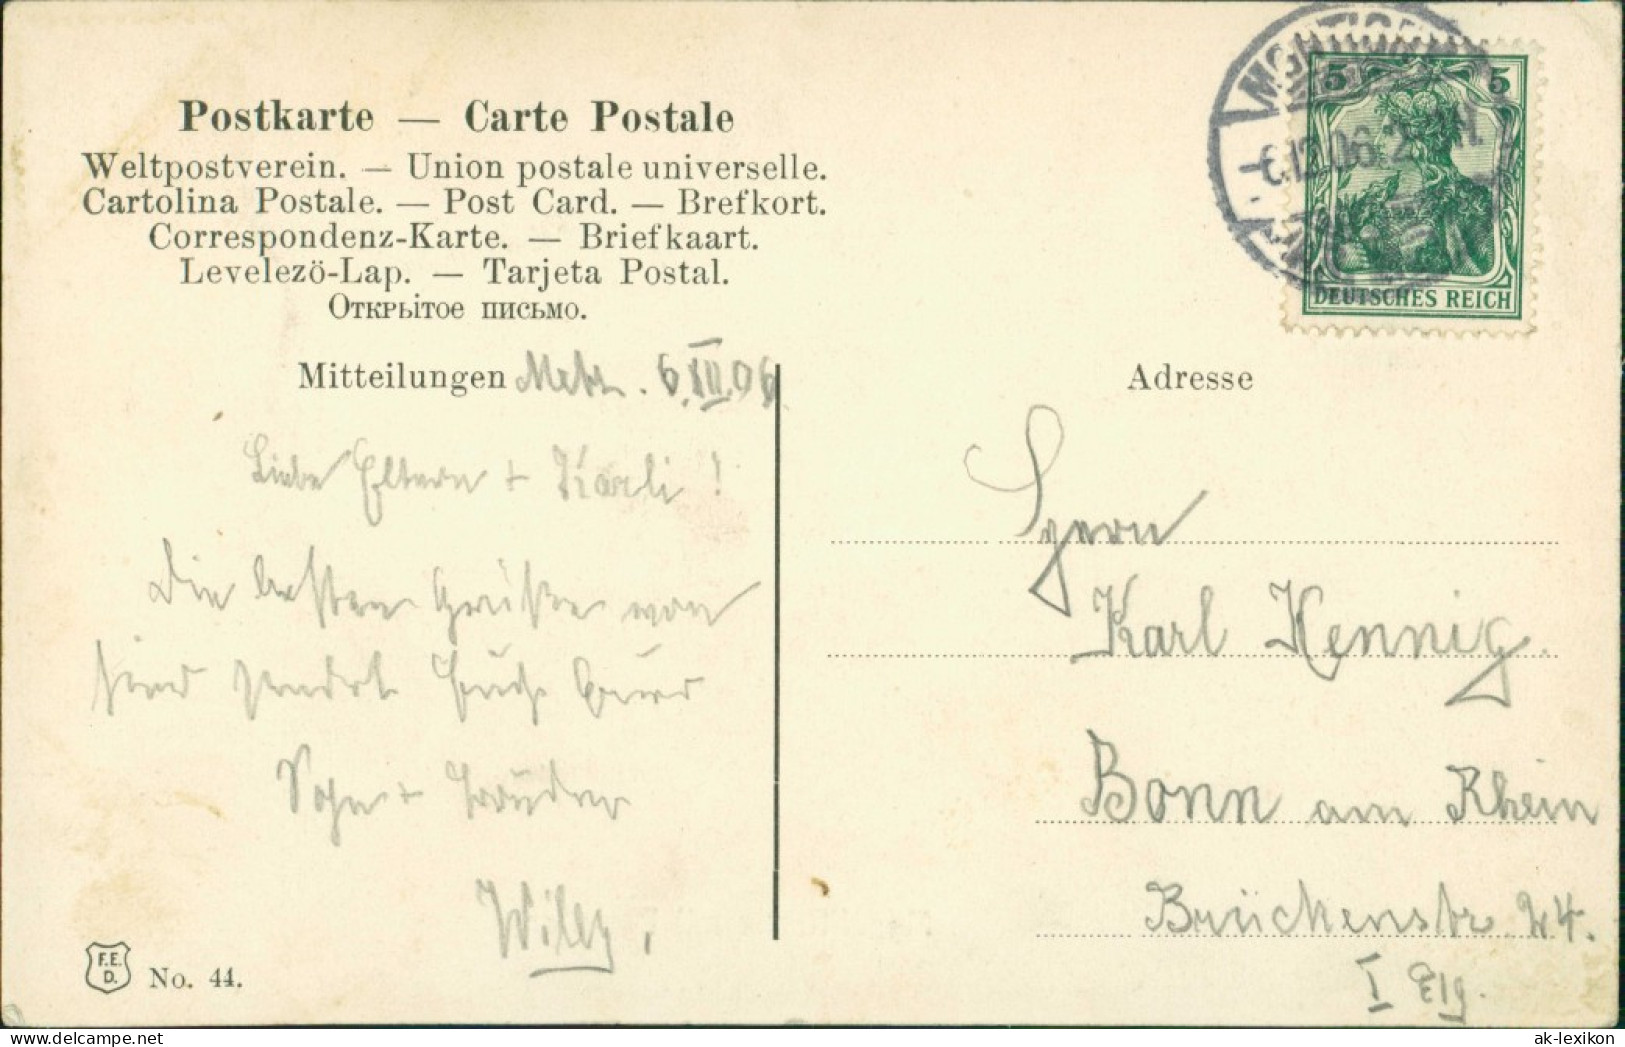 Postkarte — Carte Postale
Weltpostverein. — Union postale universelle.
Cartolina Postale. — Post Card. — Brefkort.
Correspondenz-Karte. — Briefkaart.
Levelezö-Lap. — Tarjeta Postal.
Открьітое письмо.
Mitteilungen Metz. 6.XII.06
Liebe Eltern + Karli!
Die besten Grüße von
hier sendet Euch Euer
Sohn + Bruder
Willy.
F.E.
D.
No. 44.
5 5
6.12.06. 2 N.
DEUTSCHES REICH
Adresse
Herrn
Karl Hennig.
Bonn am Rhein
Brückenstr 24.
I Etg.
ak-lexikon